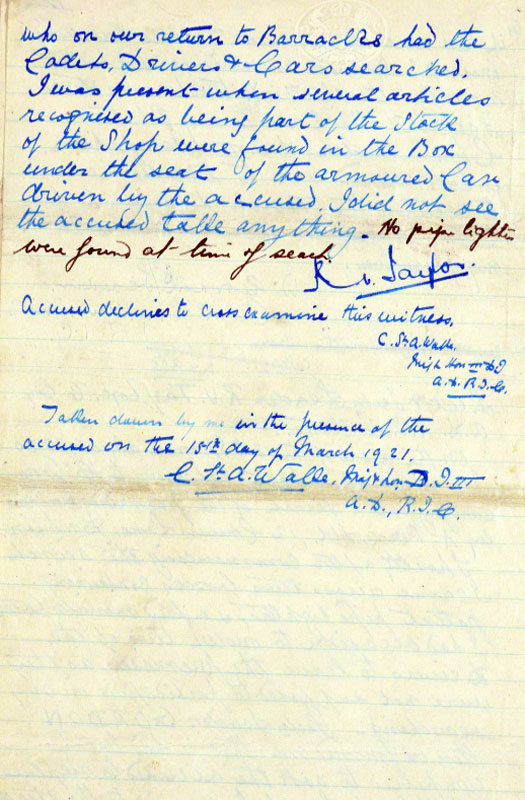 who on our return to Barracks had the
Cadets, Drivers & Cars searched.
I was present when several articles
recognised as being part of the Stock
of the Shop were found in the Box
under the seat of the armoured Car
driven by the accused. I did not see
the accused take anything. No pipe lighters
were found at time of seach.
R Taylor.
Accused declines to cross examine this witness.
C. St. A. Walle.
Maj & Hon DI
A.D. R.I.C.
Taken down by me in the presence of the
accused on the 15th day of March 1921.
C. St. A. Walle, Maj & Hon D.I. III
A.D., R.I.C.